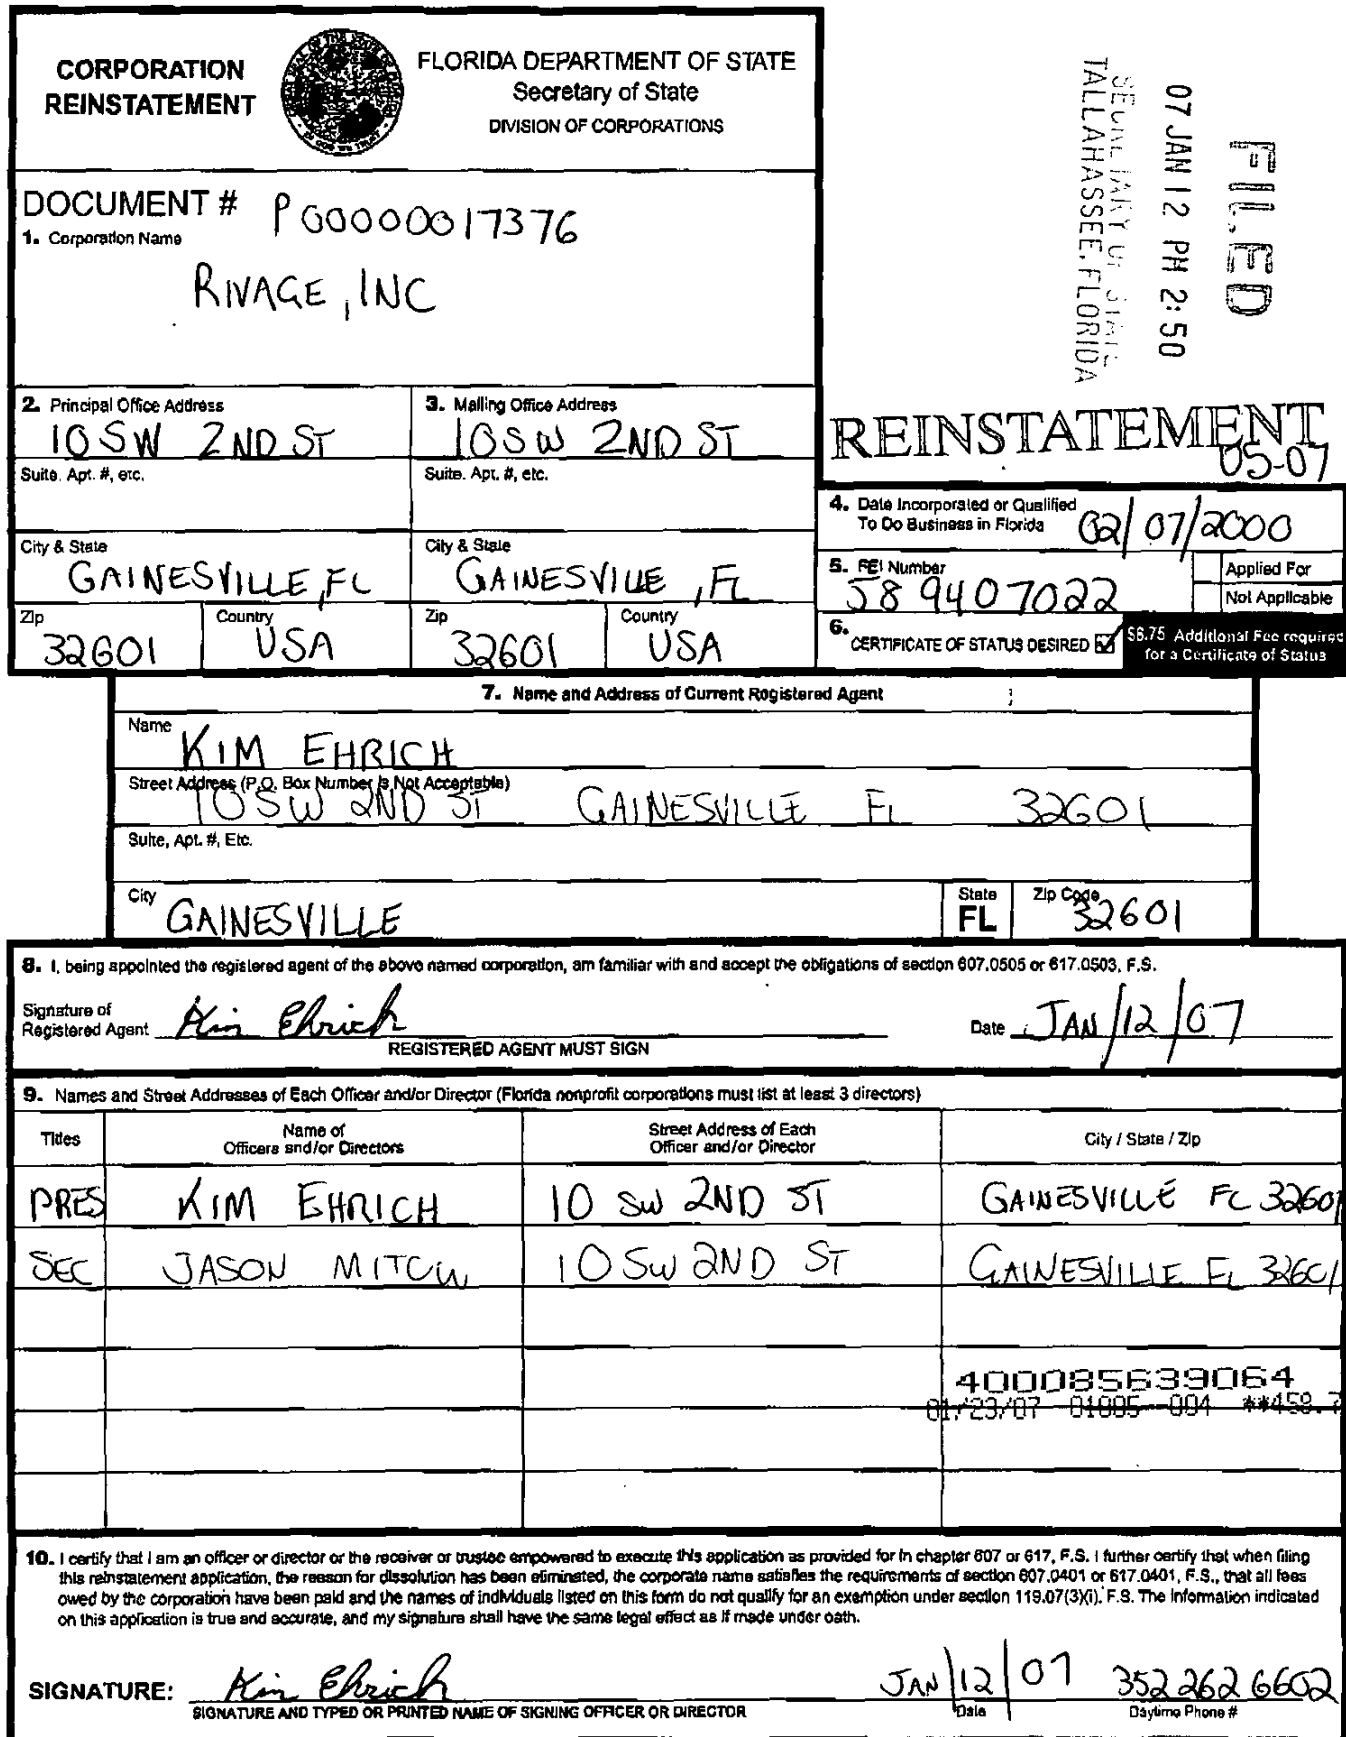 CORPORATION
REINSTATEMENT
FLORIDA DEPARTMENT OF STATE
Secretary of State
DIVISION OF CORPORATIONS
FILED
07 JAN 12 PM 2:50
SECRETARY OF STATE
TALLAHASSEE, FLORIDA
DOCUMENT # P00000017376
1. Corporation Name
RIVAGE, INC
REINSTATEMENT
05-07
2. Principal Office Address
10 SW 2ND ST
3. Mailing Office Address
10 SW 2ND ST
Suite, Apt. #, etc.
Suite, Apt. #, etc.
City & State
GAINESVILLE, FL
City & State
GAINESVILLE, FL
Zip
32601
Country
USA
Zip
32601
Country
USA
4. Date Incorporated or Qualified
To Do Business in Florida
02/07/2000
5. FEI Number
589407022
Applied For
Not Applicable
6. CERTIFICATE OF STATUS DESIRED
$8.75 Additional Fee required
for a Certificate of Status
7. Name and Address of Current Registered Agent
Name
KIM EHRICH
Street Address (P.O. Box Number is Not Acceptable)
10 SW 2ND ST GAINESVILLE FL 32601
Suite, Apt. #, Etc.
City
GAINESVILLE
State
FL
Zip Code
32601
8. I, being appointed the registered agent of the above named corporation, am familiar with and accept the obligations of section 607.0505 or 617.0503, F.S.
Signature of
Registered Agent
Kim Ehrich
REGISTERED AGENT MUST SIGN
Date JAN/12/07
9. Names and Street Addresses of Each Officer and/or Director (Florida nonprofit corporations must list at least 3 directors)
Titles
Name of
Officers and/or Directors
Street Address of Each
Officer and/or Director
City / State / Zip
PRES KIM EHRICH 10 SW 2ND ST GAINESVILLE FL 32601
SEC JASON 10 SW 2ND ST GAINESVILLE FL 32601
400085639064
01/23/07 01005 004 **458.7
10. I certify that I am an officer or director or the receiver or trustee empowered to execute this application as provided for in chapter 607 or 617, F.S. I further certify that when filing
this reinstatement application, the reason for dissolution has been eliminated, the corporate name satisfies the requirements of section 607.0401 or 617.0401, F.S., that all fees
owed by the corporation have been paid and the names of individuals listed on this form do not qualify for an exemption under section 119.07(3)(i), F.S. The information indicated
on this application is true and accurate, and my signature shall have the same legal effect as if made under oath.
SIGNATURE: Kim Ehrich
SIGNATURE AND TYPED OR PRINTED NAME OF SIGNING OFFICER OR DIRECTOR
JAN/12/07
Date
352 262 6602
Daytime Phone #